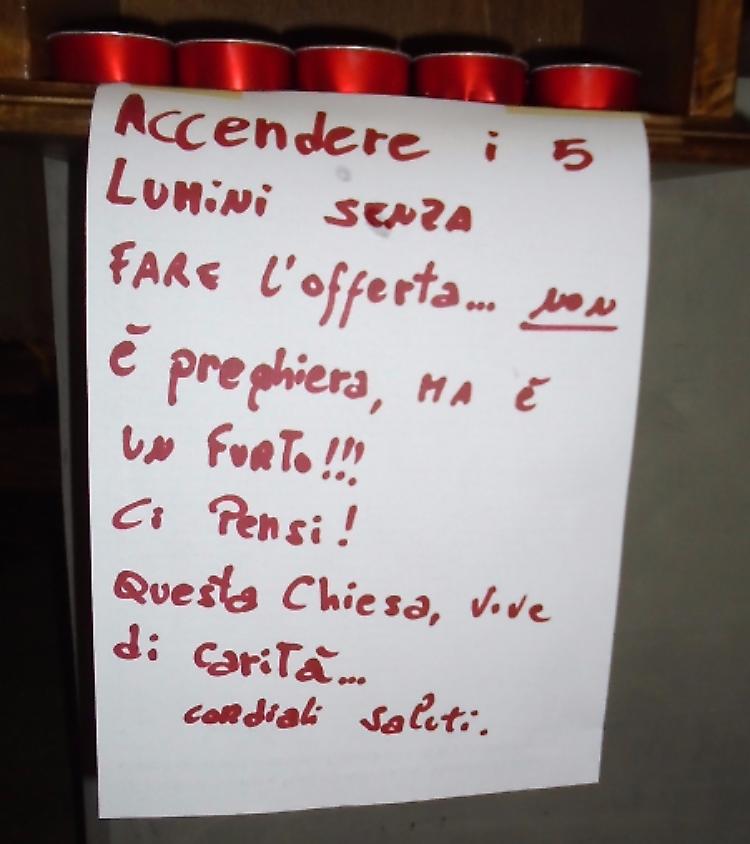 Accendere i 5
Lumini senza
fare l'offerta... non
è preghiera, ma è
un furto!!!
Ci Pensi!
Questa Chiesa, vive
di carità...
cordiali saluti.